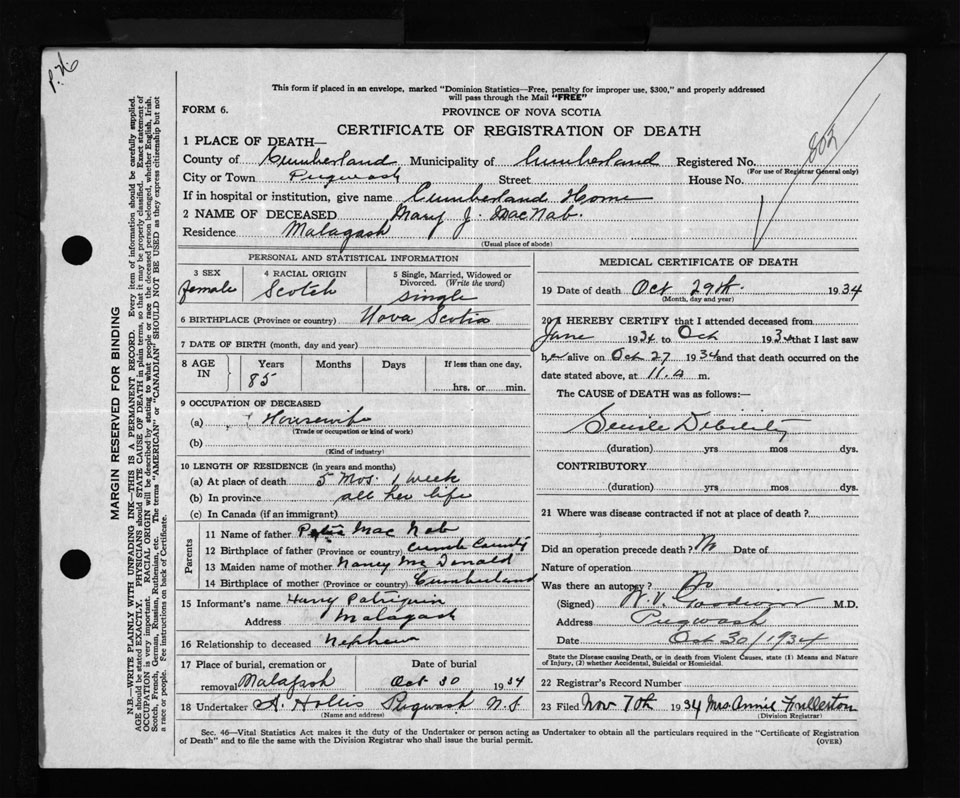 P.H.
This form if placed in an envelope, marked "Dominion Statistics—Free, penalty for improper use, $300," and properly addressed
will pass through the Mail "FREE"
FORM 6.
PROVINCE OF NOVA SCOTIA
CERTIFICATE OF REGISTRATION OF DEATH
803
1 PLACE OF DEATH—
County of Cumberland Municipality of Cumberland Registered No.
(For use of Registrar General only)
City or Town Pugwash Street House No.
If in hospital or institution, give name Cumberland Home
2 NAME OF DECEASED Mary J. MacNab.
Residence Malagash
(Usual place of abode)
PERSONAL AND STATISTICAL INFORMATION
3 SEX 4 RACIAL ORIGIN 5 Single, Married, Widowed or
Divorced. (Write the word)
female Scotch single
6 BIRTHPLACE (Province or country) Nova Scotia
7 DATE OF BIRTH (month, day and year)
8 AGE IN Years Months Days If less than one day,
85 hrs. or min.
9 OCCUPATION OF DECEASED
(a) Housewife
(Trade or occupation or kind of work)
(b)
(Kind of industry)
10 LENGTH OF RESIDENCE (in years and months)
(a) At place of death 5 Mos. 1 week
(b) In province all her life
(c) In Canada (if an immigrant)
Parents
11 Name of father Mac Nab
12 Birthplace of father (Province or country) Cumb County
13 Maiden name of mother Nancy McDonald
14 Birthplace of mother (Province or country) Cumberland
15 Informant's name Harry Patriquin
Address Malagash
16 Relationship to deceased Nephew
17 Place of burial, cremation or Date of burial
removal Malagash Oct 30 1934
18 Undertaker A. Hollis Pugwash N.S.
(Name and address)
MEDICAL CERTIFICATE OF DEATH
19 Date of death Oct 29th. 1934
(Month, day and year)
20 I HEREBY CERTIFY that I attended deceased from
June 1934 to Oct 1934 that I last saw
her alive on Oct 27 1934 and that death occurred on
date stated above, at 11.a m.
The CAUSE of DEATH was as follows:—
Senile Debility
(duration) yrs mos dys.
CONTRIBUTORY
(duration) yrs mos dys.
21 Where was disease contracted if not at place of death?
Did an operation precede death? No Date of
Nature of operation
Was there an autopsy? No
(Signed) W. V. Goodwin M.D.
Address Pugwash
Date Oct 30/1934
State the Disease causing Death, or in death from Violent Causes, state (1) Means and Nature
of Injury, (2) whether Accidental, Suicidal or Homicidal.
22 Registrar's Record Number
23 Filed Nov 7th 1934 Mrs. Annie Fullerton
(Division Registrar)
Sec. 46—Vital Statistics Act makes it the duty of the Undertaker or person acting as Undertaker to obtain all the particulars required in the "Certificate of Registration
of Death" and to file the same with the Division Registrar who shall issue the burial permit.
(OVER)
MARGIN RESERVED FOR BINDING
N.B.—WRITE PLAINLY WITH UNFADING INK—THIS IS A PERMANENT RECORD. Every item of information should be carefully supplied.
AGE should be stated EXACTLY. PHYSICIANS should STATE CAUSE OF DEATH in plain terms, so that it may be properly classified. Exact statement of
OCCUPATION is very important. RACIAL ORIGIN will be described by stating to what people or race the deceased person belonged, whether English, Irish,
Scotch, French, German, Russian, Ruthenian, etc. The terms "AMERICAN" or "CANADIAN" SHOULD NOT BE USED as they express citizenship but not
a race or people. Fee instructions on back of Certificate.